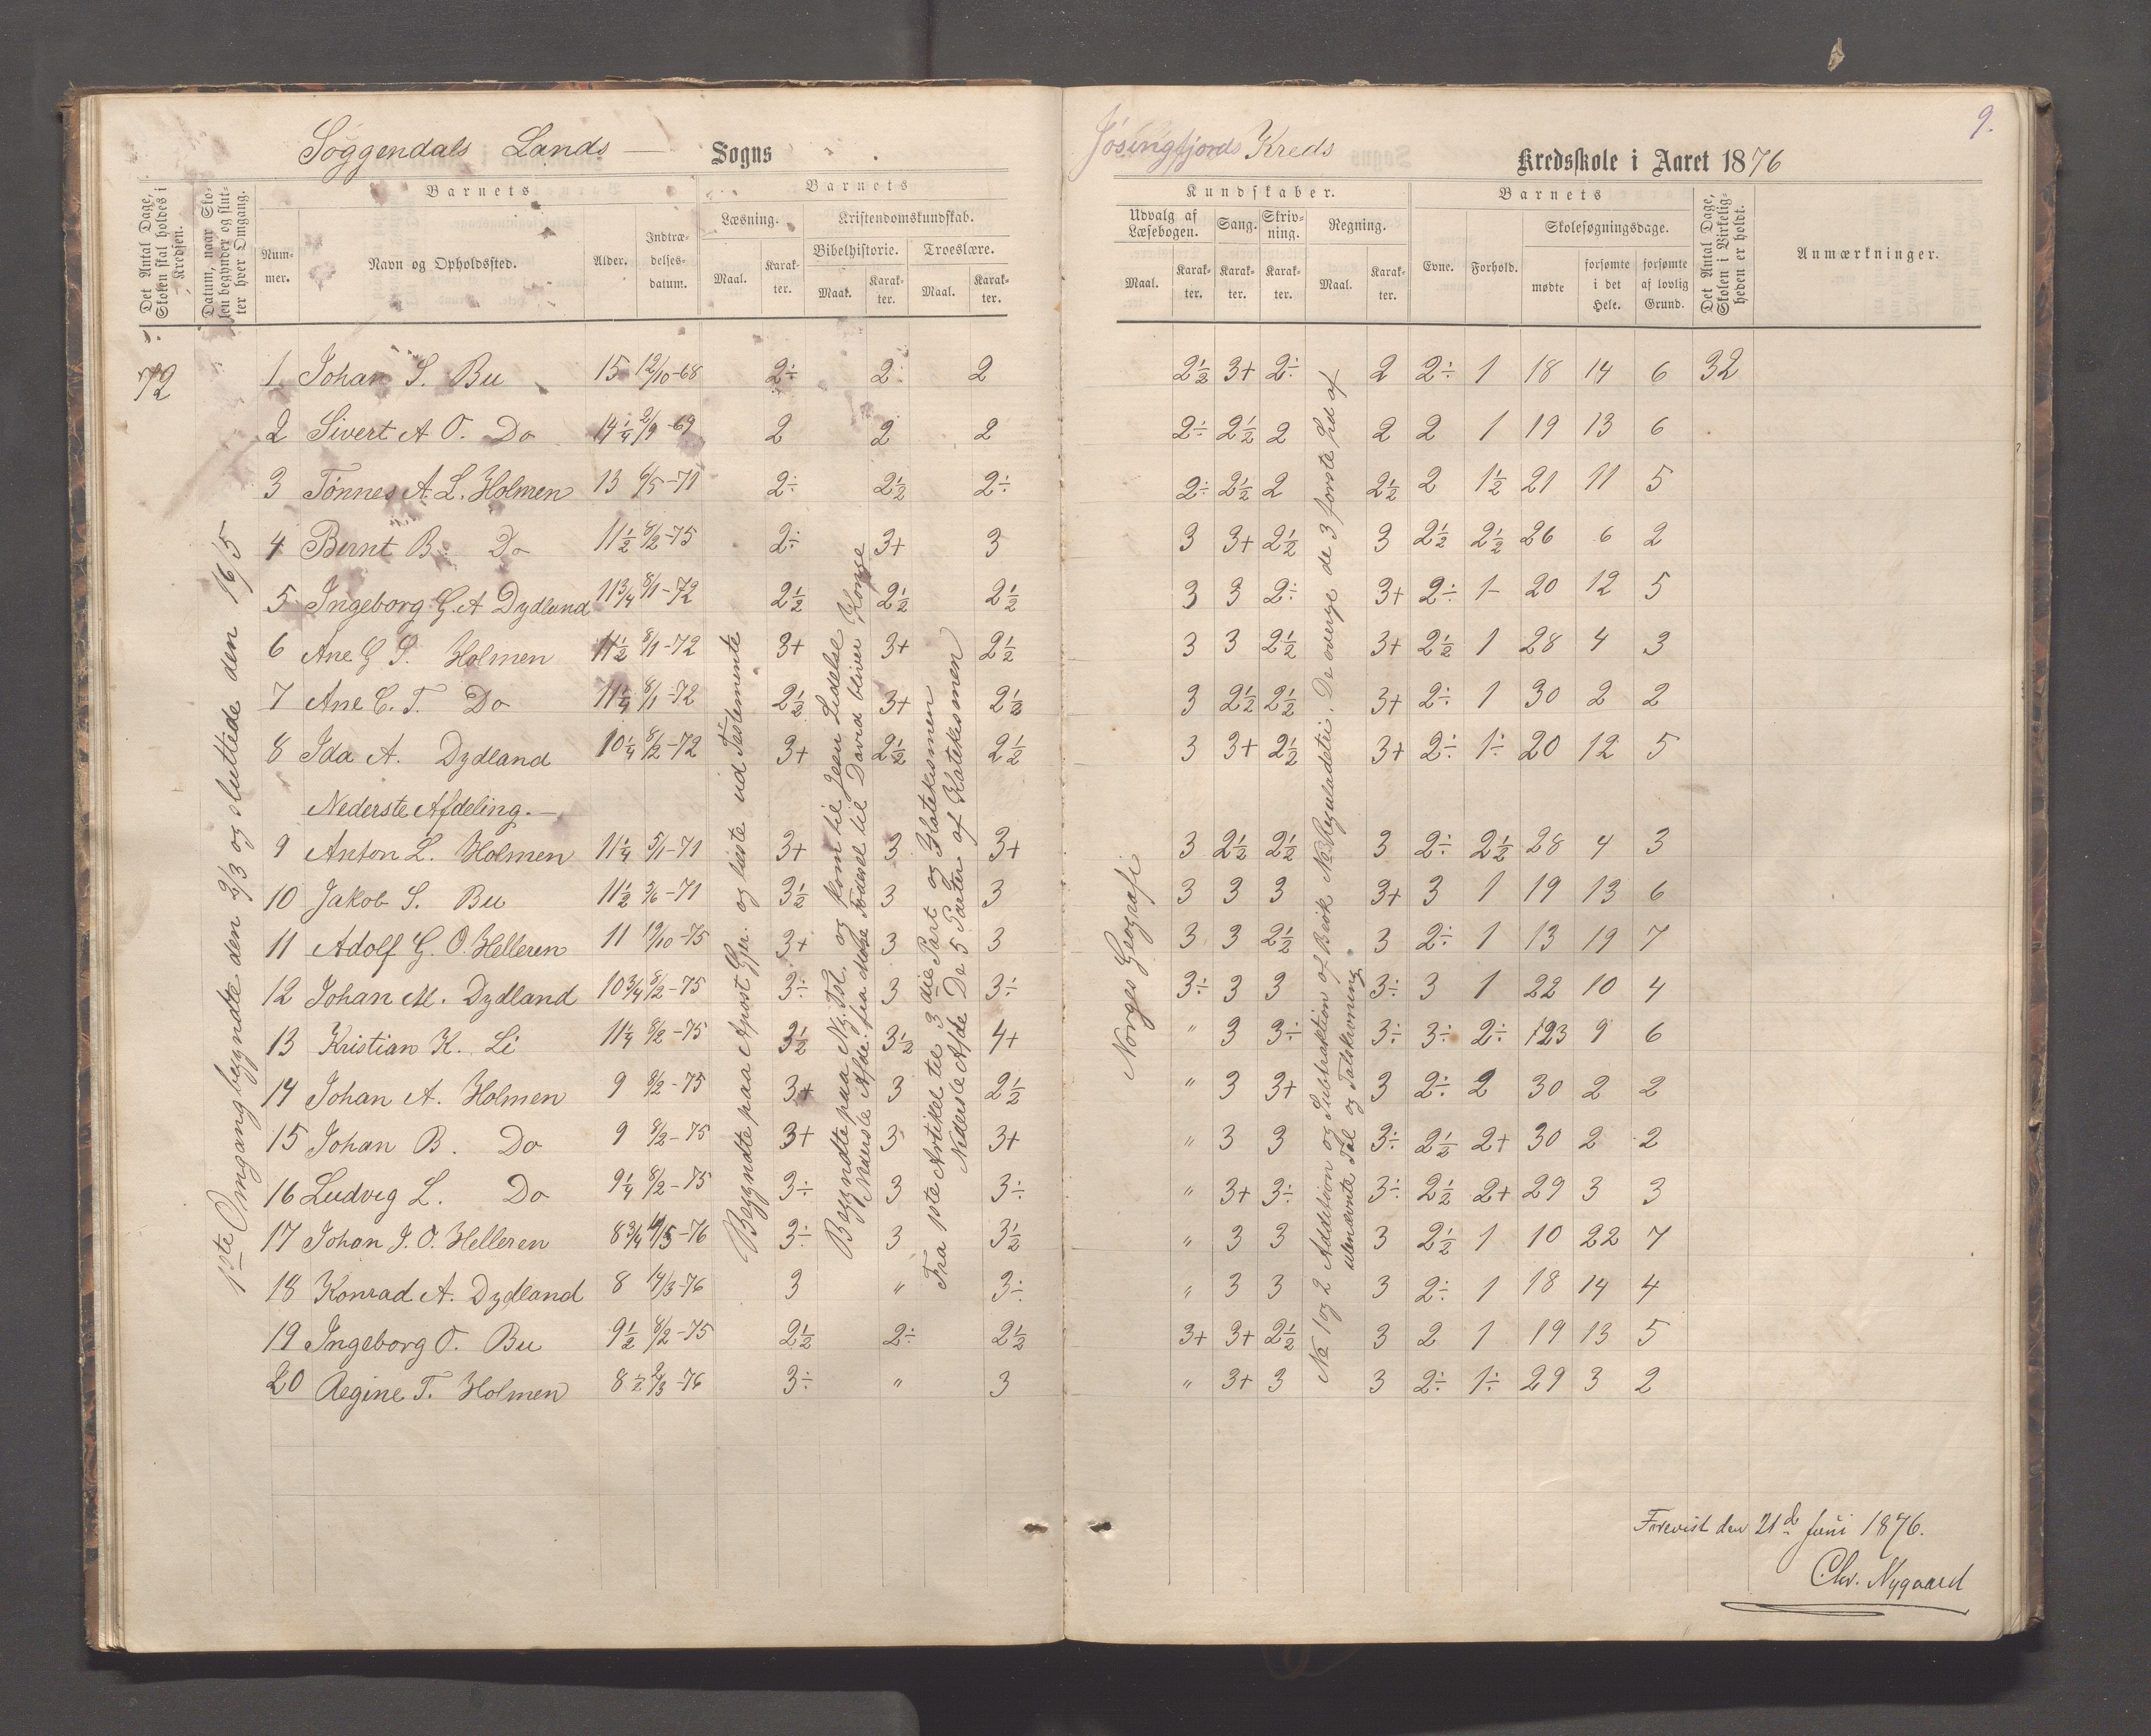 Soggendals Lands — Sogns
Jösingfjords Kreds Kredsskole i Aaret 1876
9.
Det Antal Dage, Skolen skal holdes i Kredsen.
Datum, naar Skolen begynder og slutter hver Omgang.
Barnets
Nummer.
Navn og Opholdssted.
Alder.
Indtrædelsesdatum.
Barnets
Læsning.
Kristendomskundskab.
Bibelhistorie. Troeslære.
Maal. Karakter. Maal. Karakter. Maal. Karakter.
Kundskaber.
Udvalg af Læsebogen. Sang. Skrivning. Regning.
Maal. Karakter. Karakter. Karakter. Maal. Karakter.
Barnets
Evne. Forhold. Skolesøgningsdage.
mødte forsømte i det Hele. forsømte af lovlig Grund.
Det Antal Dage, Skolen i Virkeligheden er holdt.
Anmærkninger.
72 1 Johan S. Bu 15 12/10-68 2÷ 2 2 2½ 3+ 2÷ 2 2÷ 1 18 14 6 32
2 Sivert A O. Do 14¼ 2/9-69 2 2 2 2÷ 2½ 2 2 2 1 19 13 6
3 Tönnes A. L. Holmen 13 6/5-71 2÷ 2½ 2÷ 2÷ 2½ 2 2½ 2 1½ 21 11 5
4 Bernt B. Do 11½ 8/2-75 2÷ 3+ 3 3 3+ 2½ 3 2½ 2½ 26 6 2
5 Ingeborg G. A Dydland 11¾ 8/1-72 2½ 2½ 2½ 3 3 2÷ 3+ 2÷ 1- 20 12 5
6 Ane G S. Holmen 11½ 8/1-72 3+ 3+ 2½ 3 3 2½ 3+ 2½ 1 28 4 3
7 Ane C. T. Do 11¼ 8/1-72 2½ 3+ 2½ 3 2½ 2½ 3+ 2÷ 1 30 2 2
8 Ida A. Dydland 10¼ 8/2-72 3+ 2½ 2½ 3 3+ 2½ 3+ 2÷ 1÷ 20 12 5
Nederste Afdeling. —
9 Anton L. Holmen 11¼ 5/1-71 3+ 3 3+ 3 2½ 2½ 3 2÷ 2½ 28 4 3
10 Jakob S. Bu 11½ 3/6-71 3½ 3 3 3 3 3 3+ 3 1 19 13 6
11 Adolf G. O. Helleren 11 19/10-75 3+ 3 3 3 3 2½ 3 2÷ 1 13 19 7
12 Johan M. Dydland 10¾ 8/2-75 3÷ 3 3÷ 3÷ 3 3 3÷ 3 1 22 10 4
13 Kristian K. Li 11¼ 8/2-75 3½ 3½ 4+ " 3 3÷ 3÷ 3÷ 2÷ 23 9 6
14 Johan A. Holmen 9 8/2-75 3+ 3 2½ " 3 3+ 3 2÷ 2 30 2 2
15 Johan B. Do 9 8/2-75 3+ 3 3+ " 3 3 3÷ 2½ 2+ 30 2 2
16 Ludvig L. Do 9¼ 8/2-75 3÷ 3 3÷ " 3+ 3÷ 3÷ 2½ 2+ 29 3 3
17 Johan J. O. Helleren 8¾ 4/5-76 3÷ 3 3½ " 3 3 3 2½ 1 10 22 7
18 Konrad A. Dydland 8 14/3-76 3 " 3÷ " 3 3 3 2÷ 1 18 14 4
19 Ingeborg O. Bu 9½ 8/2-75 2½ 2÷ 2½ 3+ 3+ 2½ 3 2 1 19 13 5
20 Regine T. Holmen 8½ 2/3-76 3÷ " 3 " 3+ 3 3 2÷ 1÷ 29 3 2
1ste Omgang begyndte den 2/3 og sluttede den 16/5
Begyndte paa Apost Gjer. og læste ud Testemente
Begyndte paa Ny. Tst. og kom til Jesu Lidelse
Nederste Afde. fra Mose Fødsel til David bliver Konge
Fra 1ste Artikel til 3die Part og Katekismen
Nederste Afde De 5 Parter af Katekismen
Norges Geografi
No 1 og 2 Addition og Subtraktion af Brök No 3 Reguladetri. De övrige de 3 förste Ind af
ubenævnte Tal og Talskrivning
Forevist den 21de Juni 1876.
Chr. Nygaard